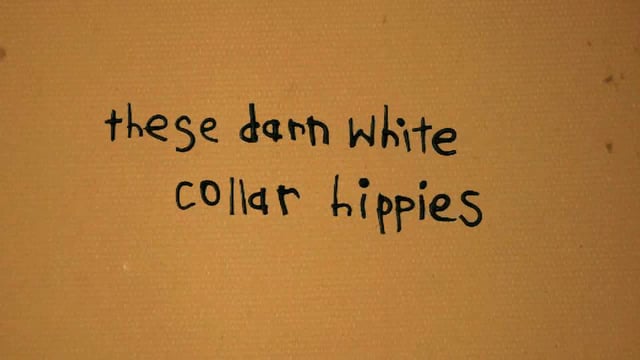 these darn white
collar hippies